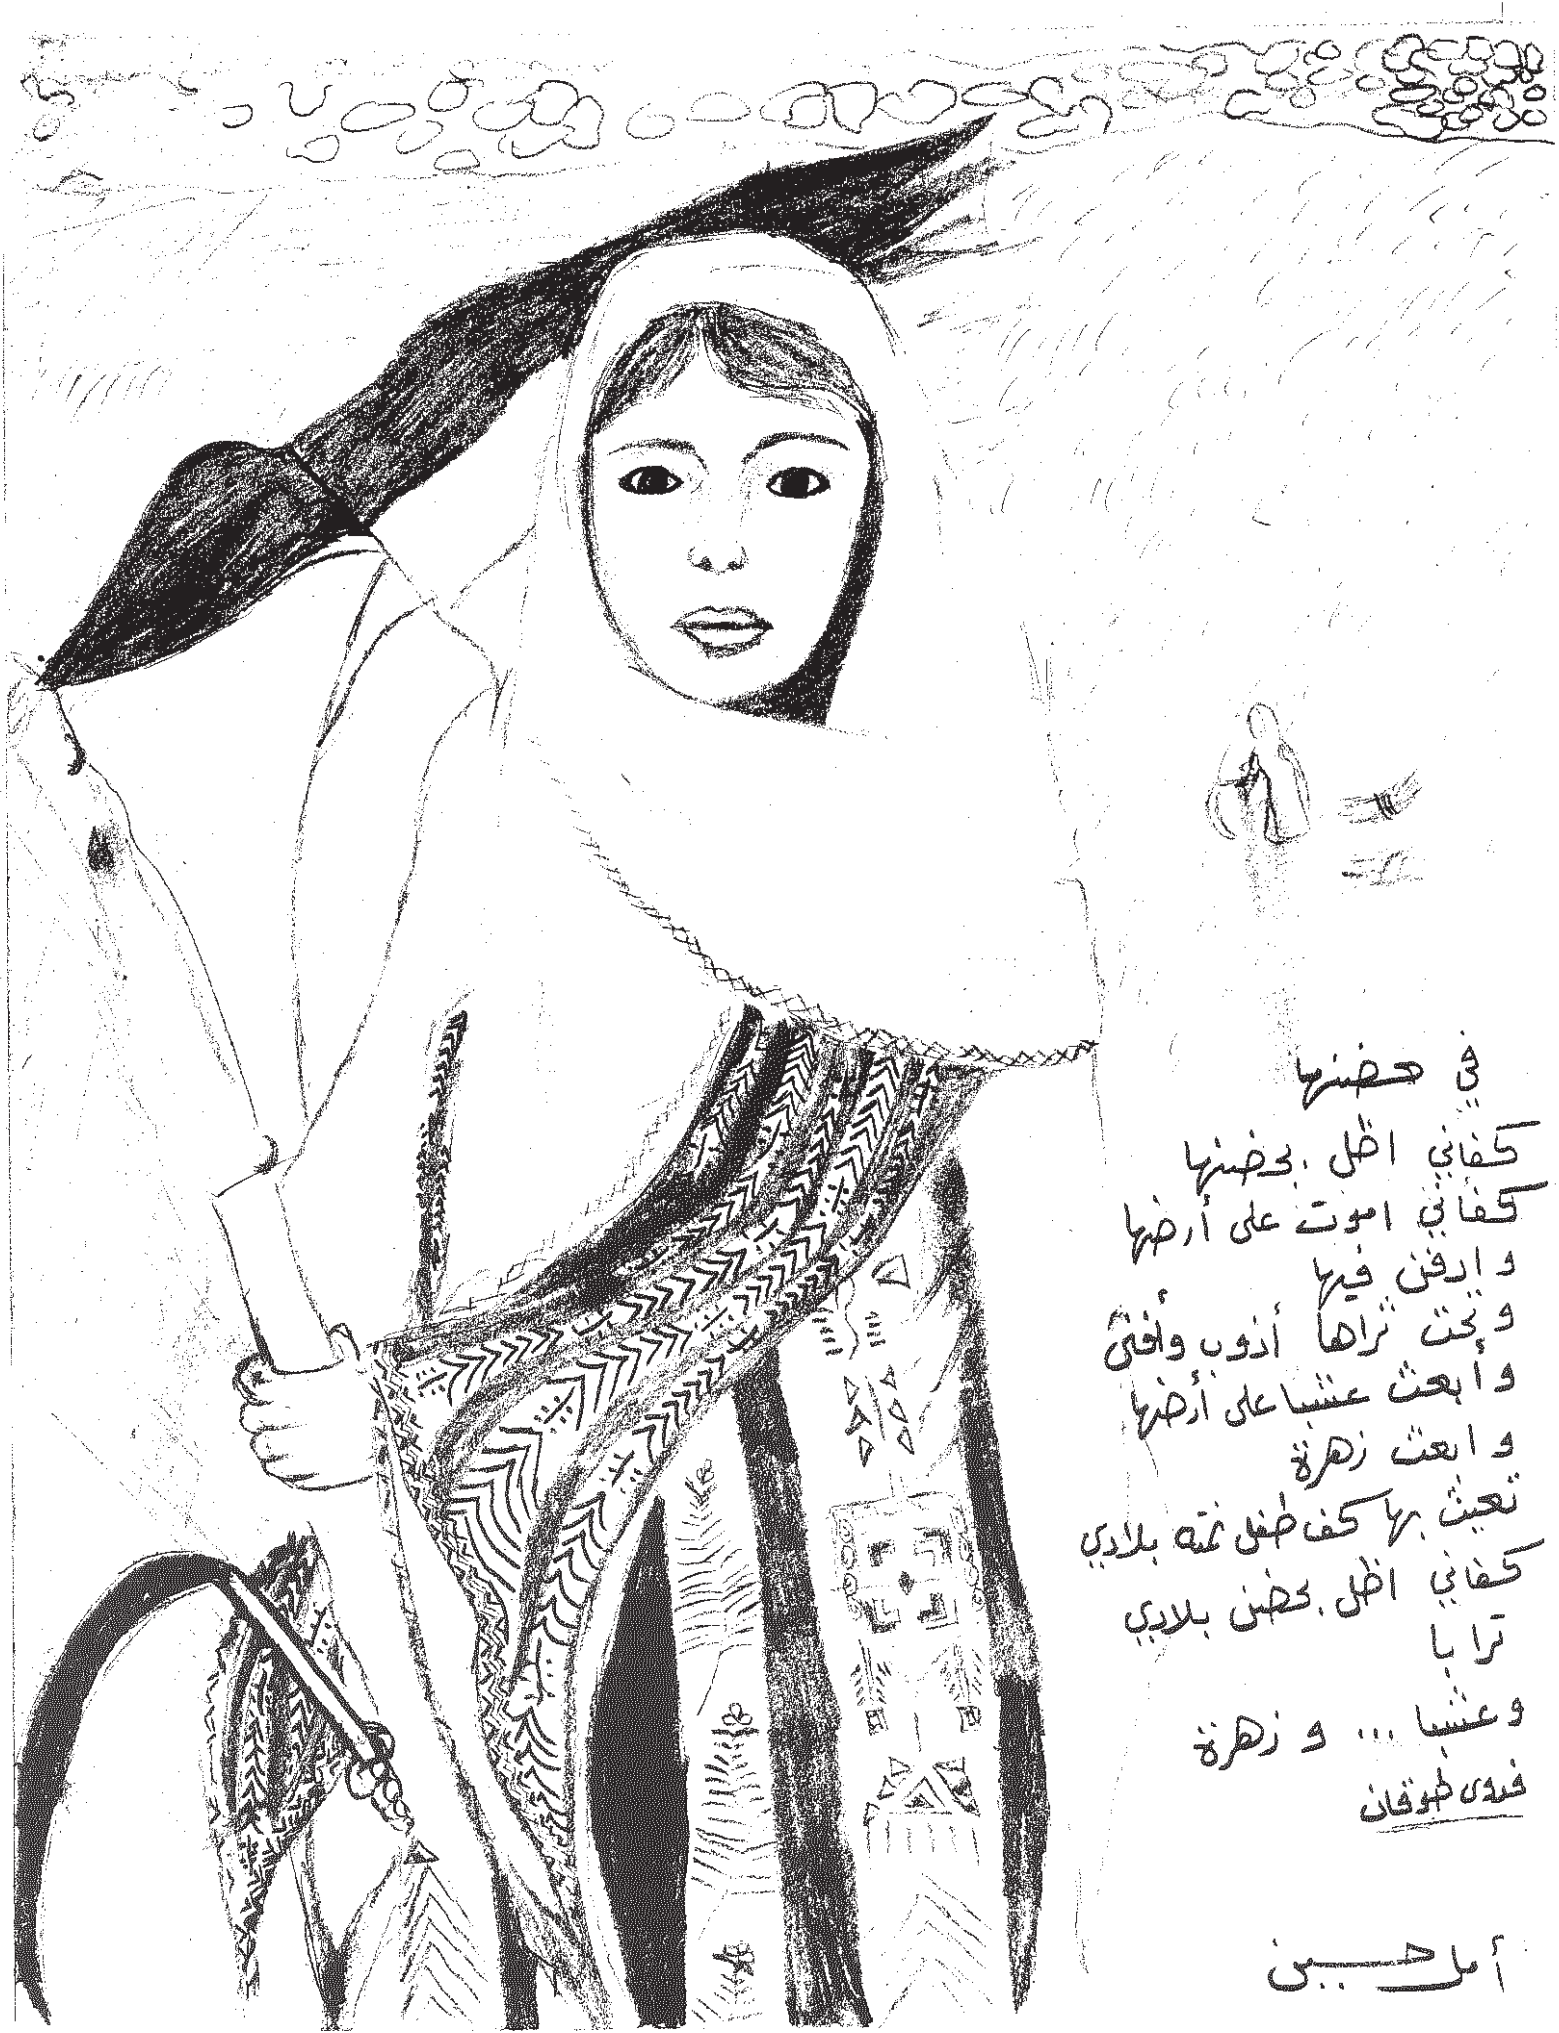 في حضنها
كفاني اظل بحضنها
كفاني اموت على أرضها
و ادفن فيها
و تحت ثراها أذوب وأفنى
و أبعث عشبا على أرضها
و ابعث زهرة
تعبث بها كف طفل نمته بلادي
كفاني اظل بحضن بلادي
ترابا
وعشبا ... و زهرة
فدوى طوقان
أمل حسين